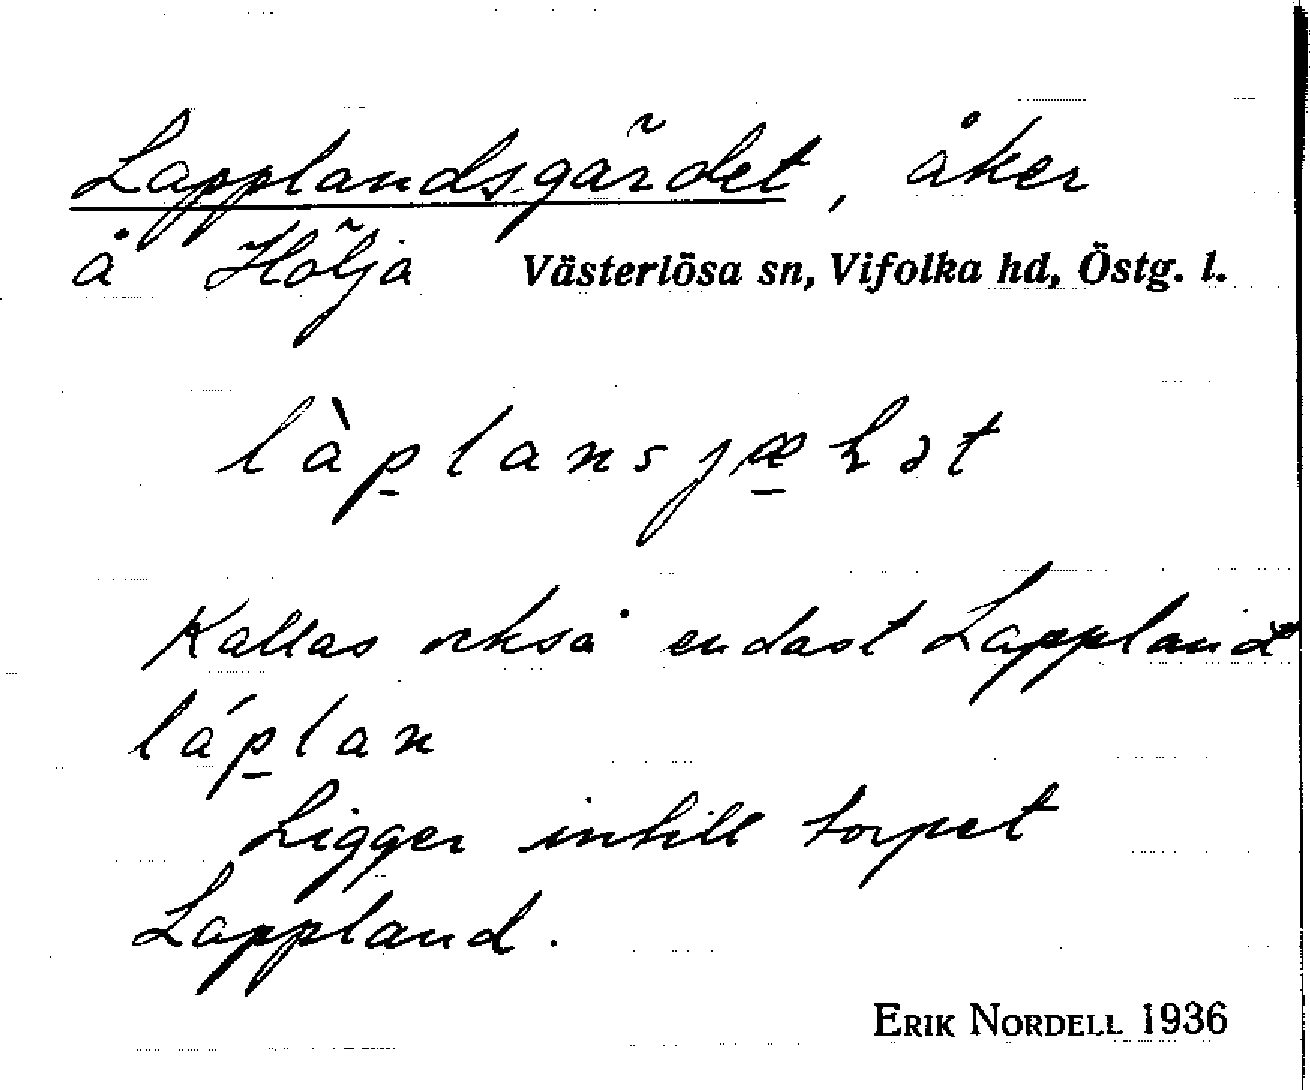 Lapplandsgärdet, åker
å Hölja Västerlösa sn, Vifolka hd, Östg. l.
làp̠lansjæ̠ɦət
Kallas också endast Lappland
láp̠lan
Ligger intill torpet
Lappland.
ERIK NORDELL 1936